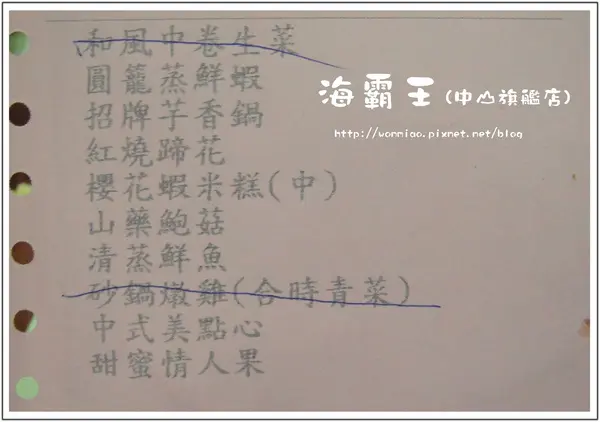 和風中卷生菜
圓籠蒸鮮蝦
招牌芋香鍋
紅燒蹄花
櫻花蝦米糕(中)
山藥鮑菇
清蒸鮮魚
砂鍋燉雞(合時青菜)
中式美點心
甜蜜情人果
海霸王(中山旗艦店)
http://wonmiao.pixnet.net/blog